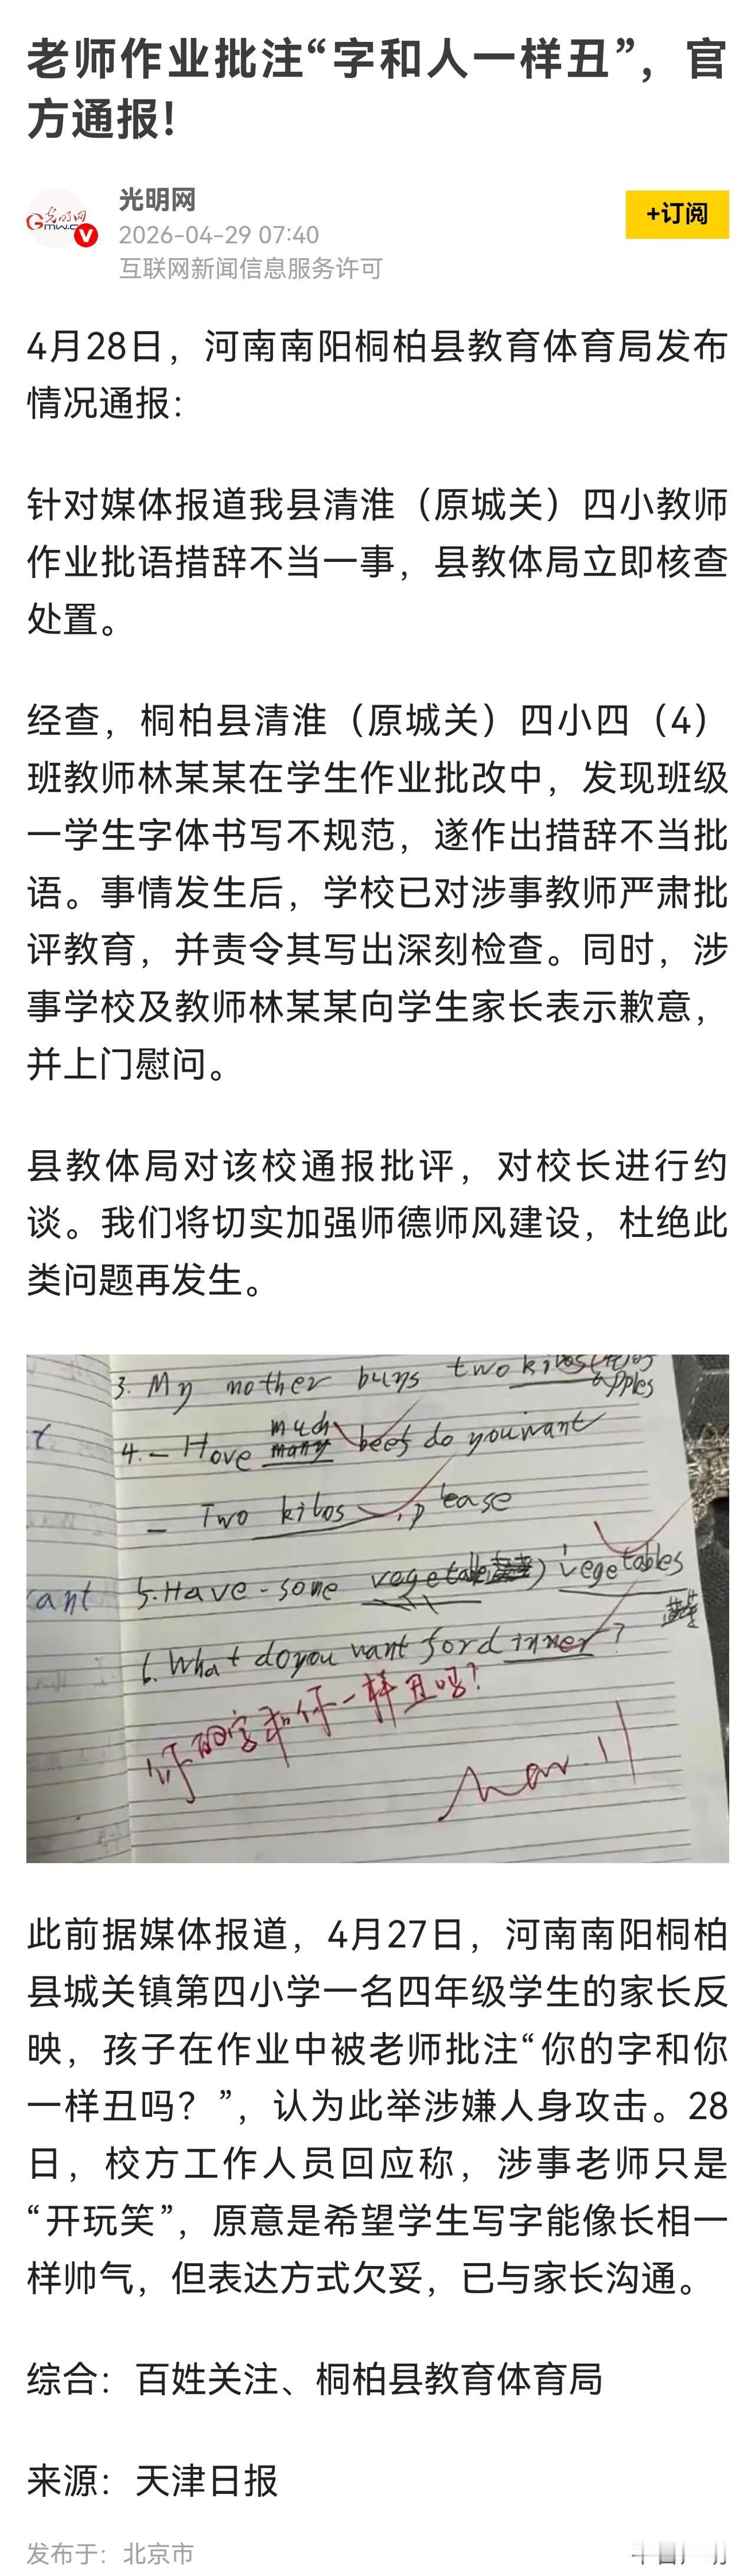 老师作业批注“字和人一样丑”，官
方通报！
光明网
GMW.C
V
2026-04-29 07:40
互联网新闻信息服务许可
+订阅
4月28日，河南南阳桐柏县教育体育局发布
情况通报：
针对媒体报道我县清淮（原城关）四小教师
作业批语措辞不当一事，县教体局立即核查
处置。
经查，桐柏县清淮（原城关）四小四（4）
班教师林某某在学生作业批改中，发现班级
一学生字体书写不规范，遂作出措辞不当批
语。事情发生后，学校已对涉事教师严肃批
评教育，并责令其写出深刻检查。同时，涉
事学校及教师林某某向学生家长表示歉意，
并上门慰问。
县教体局对该校通报批评，对校长进行约
谈。我们将切实加强师德师风建设，杜绝此
类问题再发生。
3. My mother buys two kilos
apples
4. – Hove many much beef do you want
– Two kilos , please
ant
5. Have - some vegetable vegetables
6. What do you want for dinner ?
你的字和你一样丑吗？
Mar. 11
此前据媒体报道，4月27日，河南南阳桐柏
县城关镇第四小学一名四年级学生的家长反
映，孩子在作业中被老师批注“你的字和你
一样丑吗？”，认为此举涉嫌人身攻击。28
日，校方工作人员回应称，涉事老师只是
“开玩笑”，原意是希望学生写字能像长相一
样帅气，但表达方式欠妥，已与家长沟通。
综合：百姓关注、桐柏县教育体育局
来源：天津日报
发布于：北京市